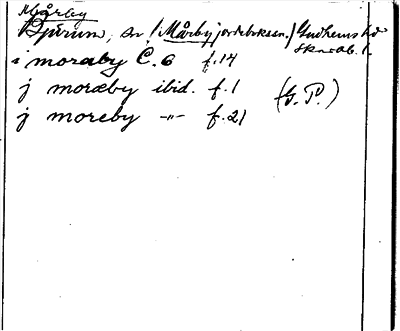 Mårby
Bjurum, sn (Mårby jordeboksen.) Gudhems hd
Skarab. l.
i moraby C. 6 f. 14
j moræby ibid. f. 1
(G. P.)
j moreby -"- f. 21